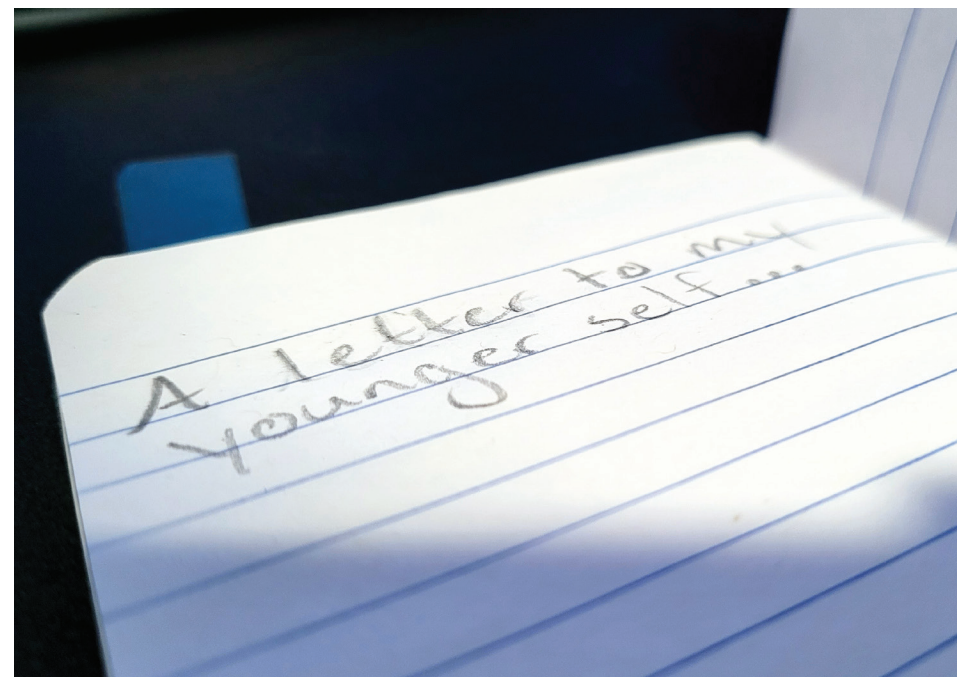 A letter to my
younger self...